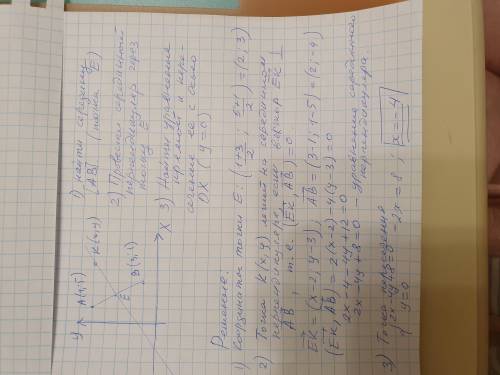 y
A(1;5)
K(x,y)
E
B(3;1)
x
1) Найти середину
[AB] (точка E)
2) Провести серединный
перпендикуляр через
точку E
3) Найти уравнение
прямой и пере-
сечение ее с осью
OX (y=0)
Решение.
1) Координаты точки E: (1+3/2 ; 5+1/2) = (2; 3)
2) Точка K(x,y) лежит на серединном
перпендикуляре, если вектор EK ⊥
AB, т.е. (EK, AB) = 0
EK = (x-2; y-3); AB = (3-1; 1-5) = (2; -4)
(EK, AB) = 2(x-2) - 4(y-3) = 0
2x - 4 - 4y + 12 = 0
2x - 4y + 8 = 0 - уравнение серединного
перпендикуляра.
3) Точка пересечения
{ 2x - 4y + 8 = 0
y = 0
-2x = 8 ; x = -4